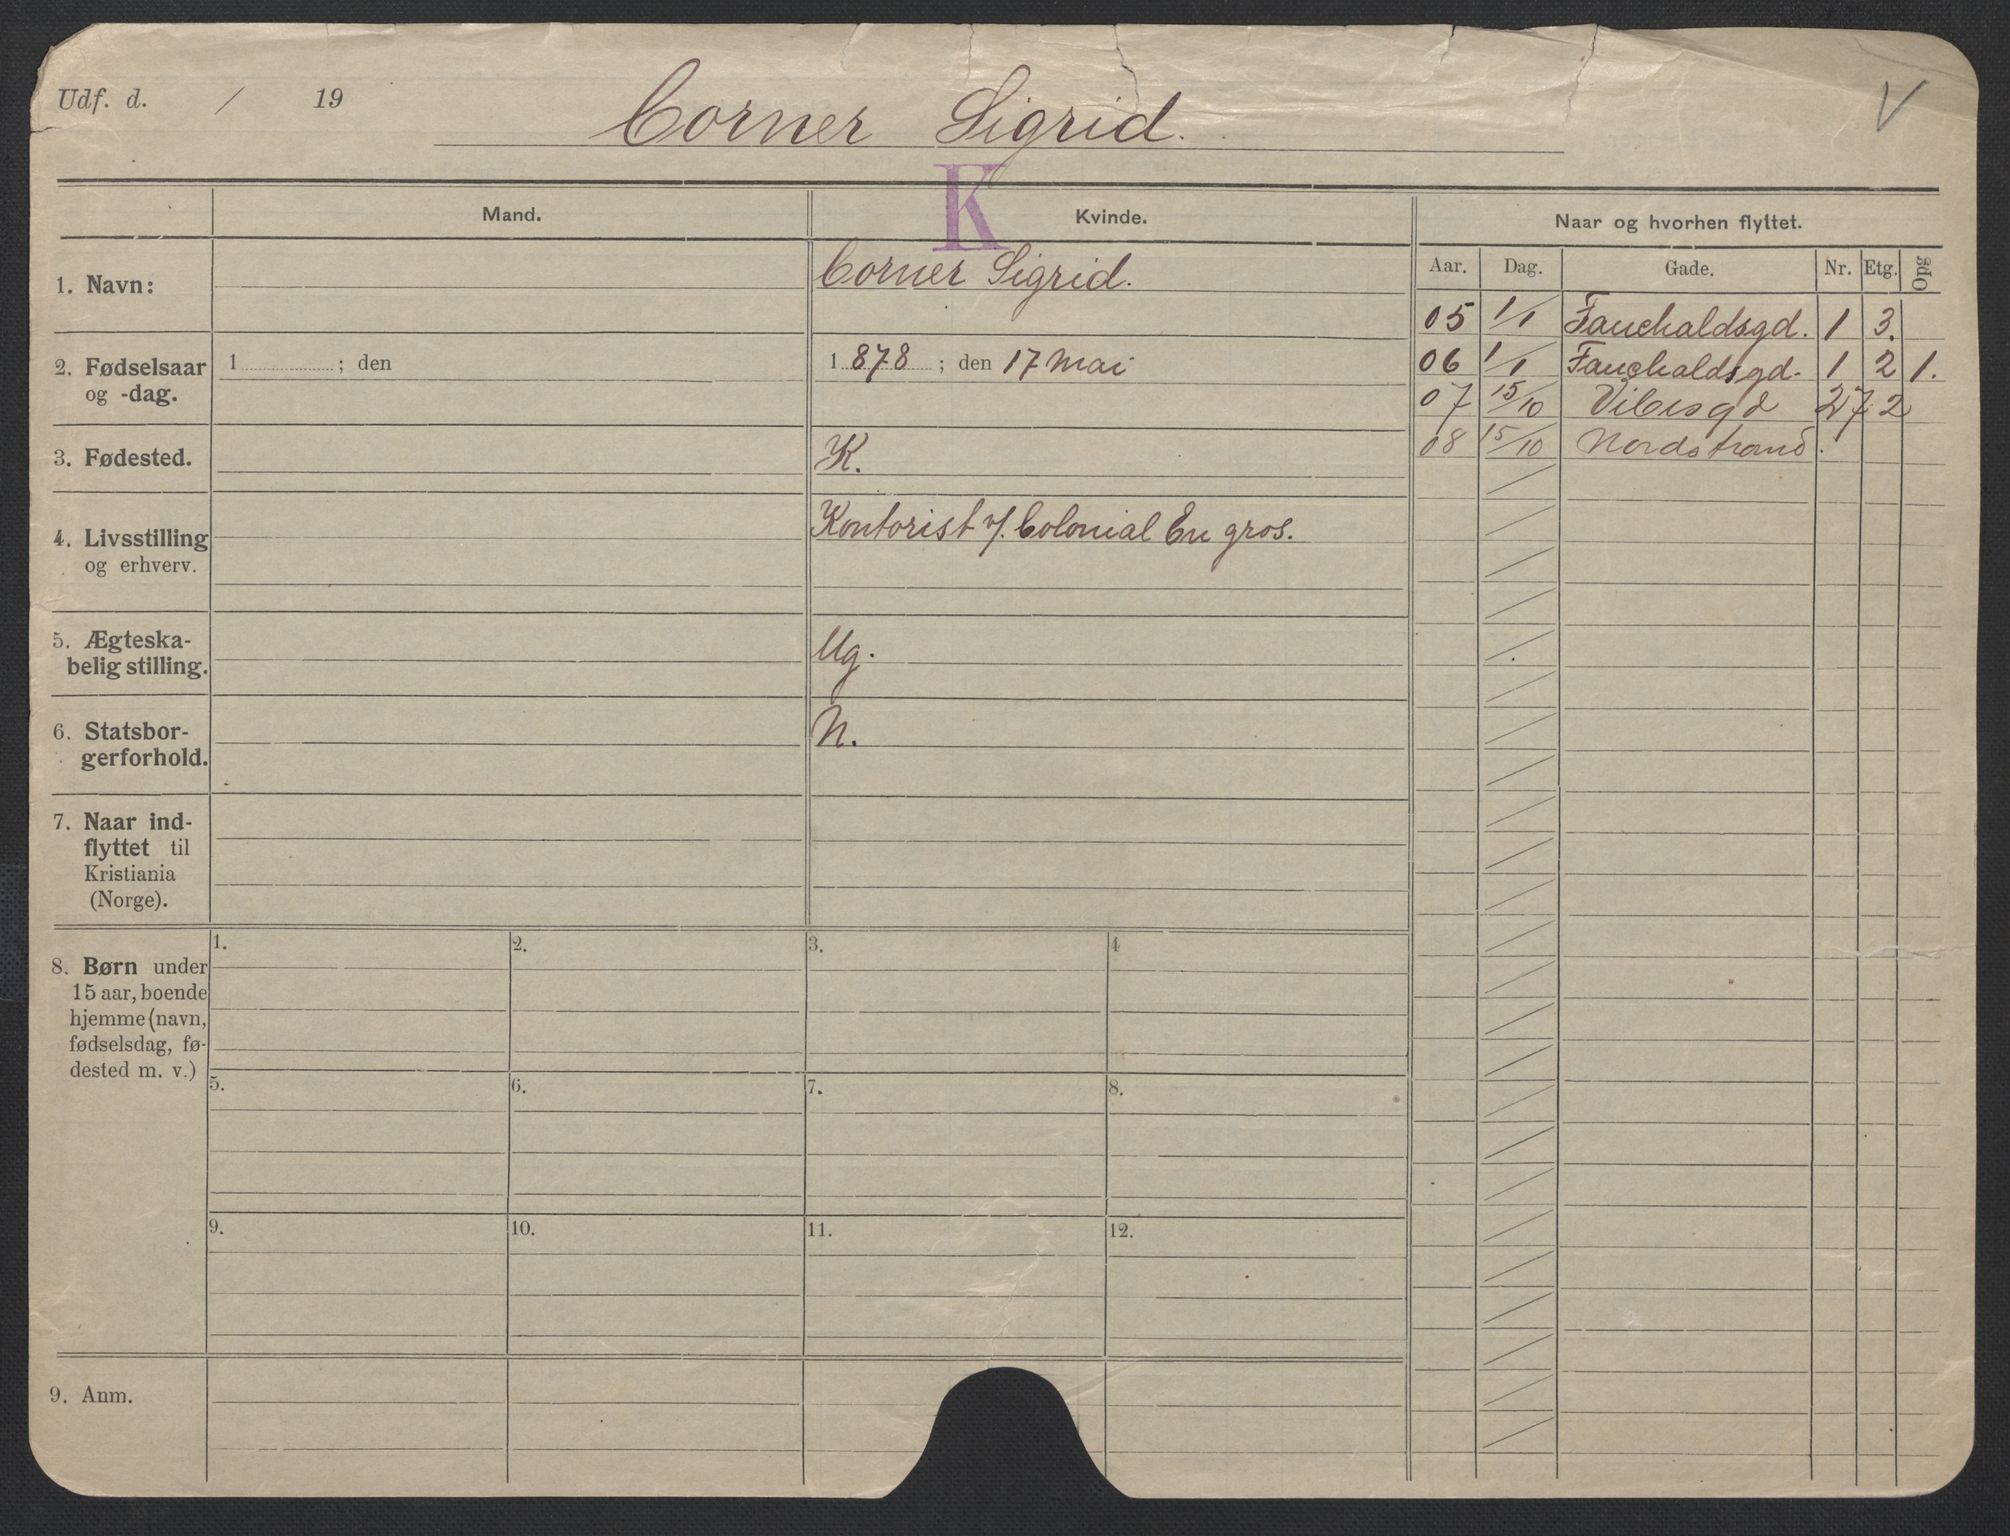 Udf. d. / 19
Corner Sigrid.
V
K
Mand.
Kvinde.
Naar og hvorhen flyttet.
Aar. Dag. Gade. Nr. Etg. Opg
1. Navn:
Corner Sigrid.
05 1/1 Fauchaldsgd. 1 3.
06 1/1 Fauchaldsgd. 1 2 1.
07 15/10 Vibesgd 27 2
08 15/10 Nordstrand.
2. Fødselsaar
og -dag.
1 ; den
1 878 ; den 17 Mai
3. Fødested.
K.
4. Livsstilling
og erhverv.
Kontorist v/. Colonial En gros.
5. Ægteska-
belig stilling.
Ug.
6. Statsbor-
gerforhold.
N.
7. Naar ind-
flyttet til
Kristiania
(Norge).
8. Børn under
15 aar, boende
hjemme (navn,
fødselsdag, fø-
dested m. v.)
1. 2. 3. 4
5. 6. 7. 8.
9. 10. 11. 12.
9. Anm.